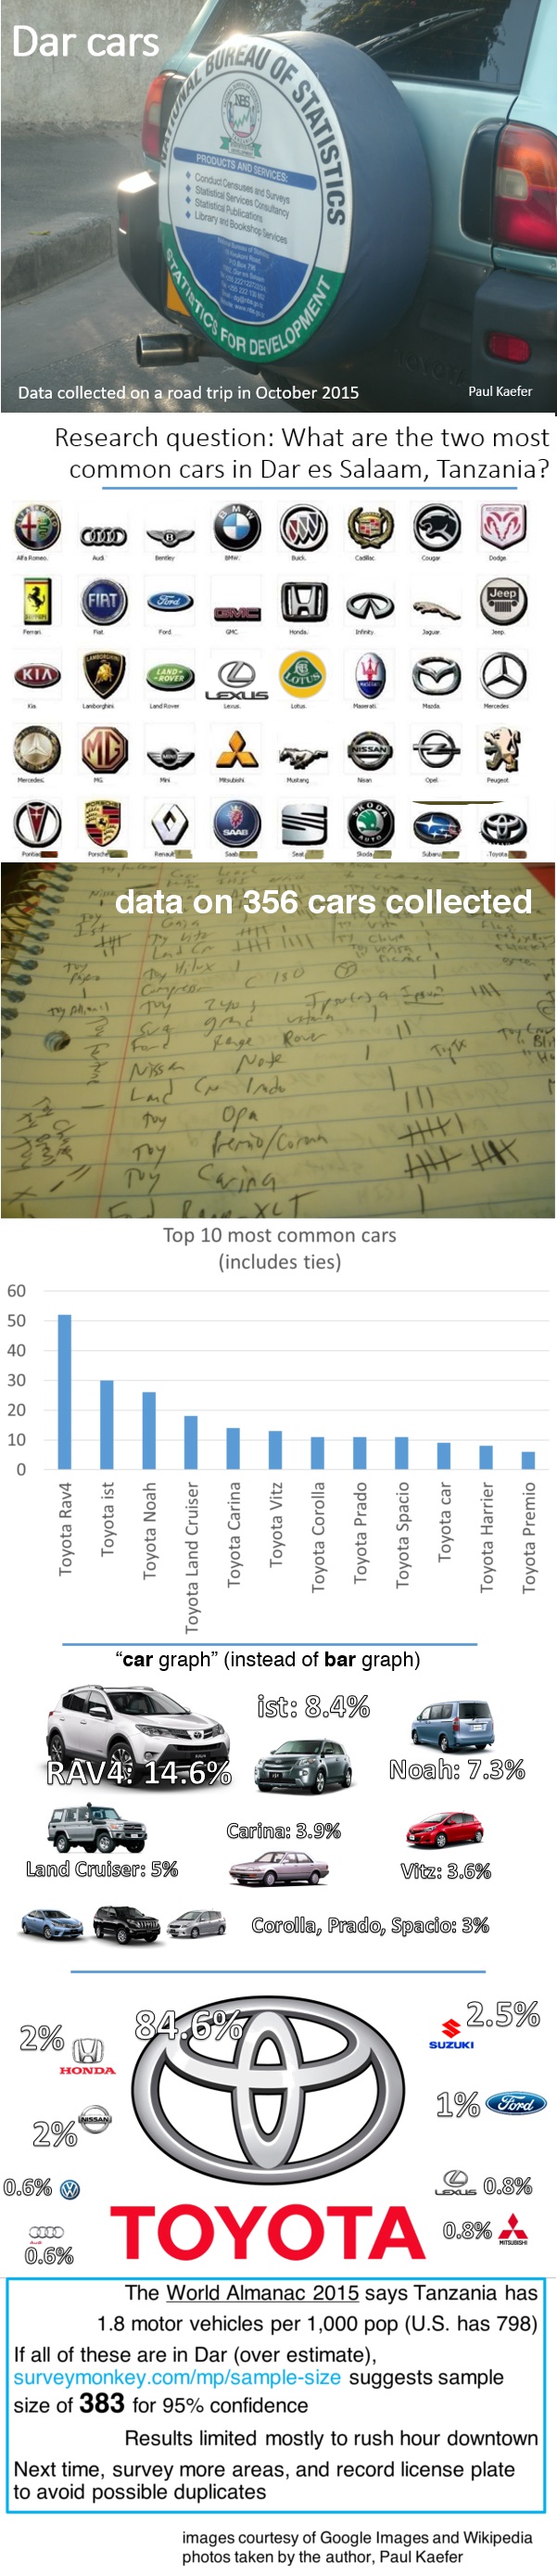 Dar cars
NATIONAL BUREAU OF STATISTICS
NBS
PRODUCTS AND SERVICES:
Conduct Censuses and Surveys
Statistical Services Consultancy
Statistical Publications
Library and Bookshop Services
STATISTICS FOR DEVELOPMENT
Data collected on a road trip in October 2015
Paul Kaefer
Research question: What are the two most
common cars in Dar es Salaam, Tanzania?
Alfa Romeo. Audi. Bentley BMW. Buick. Cadillac. Cougar. Dodge.
FIAT Ford GMC Jeep
Ferrari. Fiat. Ford. GMC. Honda. Infinity. Jaguar. Jeep.
KIA LAMBORGHINI LAND-ROVER LEXUS LOTUS MASERATI
Kia. Lamborghini. Land Rover Lexus. Lotus. Maserati. Mazda. Mercedes
MG MINI NISSAN
Mercedes. MG. Mini Mitsubishi. Mustang Nisan Opel. Peugeot.
PORSCHE SAAB SKODA AUTO
Pontiac Porsche Renault Saab Seat Skoda Subaru Toyota
data on 356 cars collected
Toy Hilux
Range Rover
Nissan Note
Toy Opa
Toy Premio/Corona
Toy Carina
Top 10 most common cars
(includes ties)
60
50
40
30
20
10
0
Toyota Rav4
Toyota ist
Toyota Noah
Toyota Land Cruiser
Toyota Carina
Toyota Vitz
Toyota Corolla
Toyota Prado
Toyota Spacio
Toyota car
Toyota Harrier
Toyota Premio
“car graph” (instead of bar graph)
ist: 8.4%
RAV4: 14.6%
Noah: 7.3%
Carina: 3.9%
Land Cruiser: 5%
Vitz: 3.6%
Corolla, Prado, Spacio: 3%
84.6%
2.5%
SUZUKI
2%
HONDA
1% Ford
NISSAN
2%
0.6%
LEXUS 0.8%
TOYOTA
0.8%
MITSUBISHI
Audi
0.6%
The World Almanac 2015 says Tanzania has
1.8 motor vehicles per 1,000 pop (U.S. has 798)
If all of these are in Dar (over estimate),
surveymonkey.com/mp/sample-size suggests sample
size of 383 for 95% confidence
Results limited mostly to rush hour downtown
Next time, survey more areas, and record license plate
to avoid possible duplicates
images courtesy of Google Images and Wikipedia
photos taken by the author, Paul Kaefer